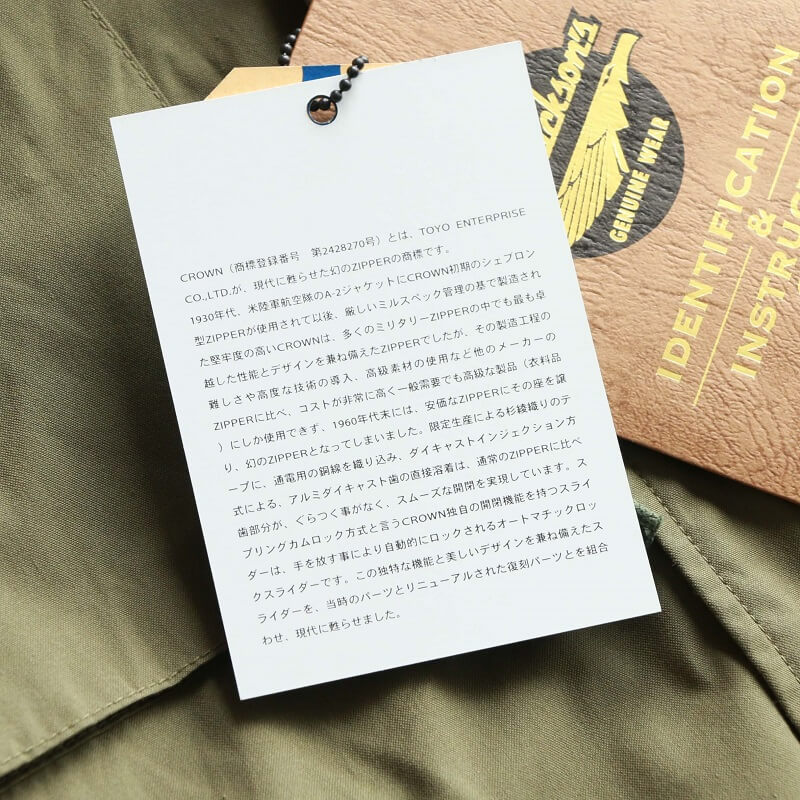 CROWN（商標登録番号　第2428270号）とは、TOYO ENTERPRISE
CO.,LTD.が、現代に甦らせた幻のZIPPERの商標です。
1930年代、米陸軍航空隊のA-2ジャケットにCROWN初期のシェブロン
型ZIPPERが使用されて以後、厳しいミルスペック管理の基で製造され
た堅牢度の高いCROWNは、多くのミリタリーZIPPERの中でも最も卓
越した性能とデザインを兼ね備えたZIPPERでしたが、その製造工程の
難しさや高度な技術の導入、高級素材の使用など他のメーカーの
ZIPPERに比べ、コストが非常に高く一般需要でも高級な製品（衣料品
）にしか使用できず、1960年代末には、安価なZIPPERにその座を譲
り、幻のZIPPERとなってしまいました。限定生産による杉綾織りのテ
ープに、通電用の銅線を織り込み、ダイキャストインジェクション方
式による、アルミダイキャスト歯の直接溶着は、通常のZIPPERに比べ
歯部分が、ぐらつく事がなく、スムーズな開閉を実現しています。ス
プリングカムロック方式と言うCROWN独自の開閉機能を持つスライ
ダーは、手を放す事により自動的にロックされるオートマチックロッ
クスライダーです。この独特な機能と美しいデザインを兼ね備えたス
ライダーを、当時のパーツとリニューアルされた復刻パーツとを組合
わせ、現代に甦らせました。
GENUINE WEAR
IDENTIFICATION
&